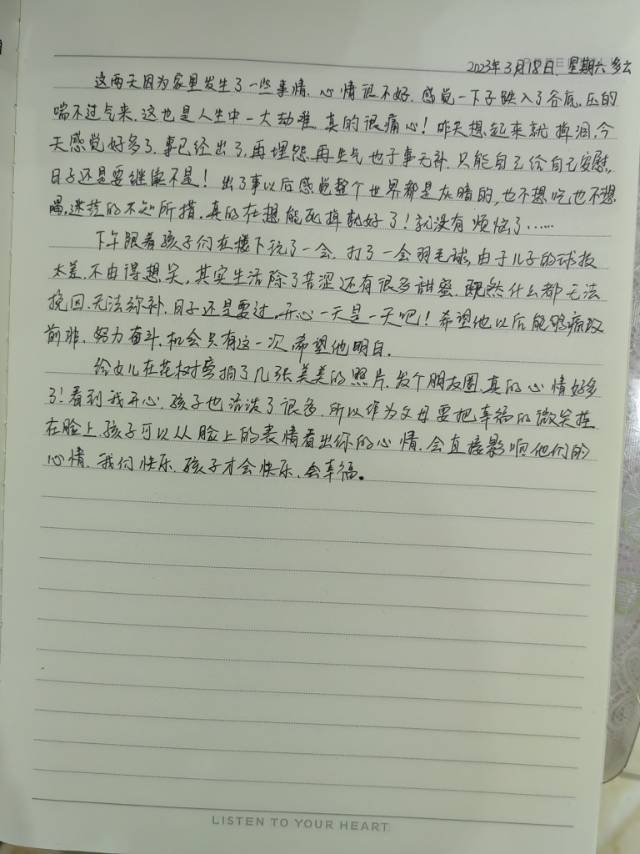 2023年3月18日 星期六 多云
这两天因为家里发生了一些事情,心情很不好,感觉一下子跌入了谷底,压的
喘不过气来,这也是人生中一大劫难,真的很痛心!昨天想起来就掉泪,今
天感觉好多了,事已经出了,再埋怨,再生气也于事无补,只能自己给自己安慰,
日子还是要继续不是!出了事以后感觉整个世界都是灰暗的,也不想吃也不想
喝,迷茫的不知所措,真的在想能死掉就好了!就没有烦恼了……
下午跟着孩子们在楼下玩了一会,打了一会羽毛球,由于儿子的球技
太差,不由得想笑,其实生活除了苦涩还有很多甜蜜,既然什么都无法
挽回,无法弥补,日子还是要过,开心一天是一天吧!希望他以后能够痛改
前非,努力奋斗,机会只有这一次,希望他明白。
给女儿在花树旁拍了几张美美的照片,发个朋友圈,真的心情好多
了!看到我开心,孩子也活泼了很多,所以作为父母要把幸福的微笑挂
在脸上,孩子可以从脸上的表情看出你的心情,会直接影响他们的
心情,我们快乐,孩子才会快乐,会幸福。
LISTEN TO YOUR HEART